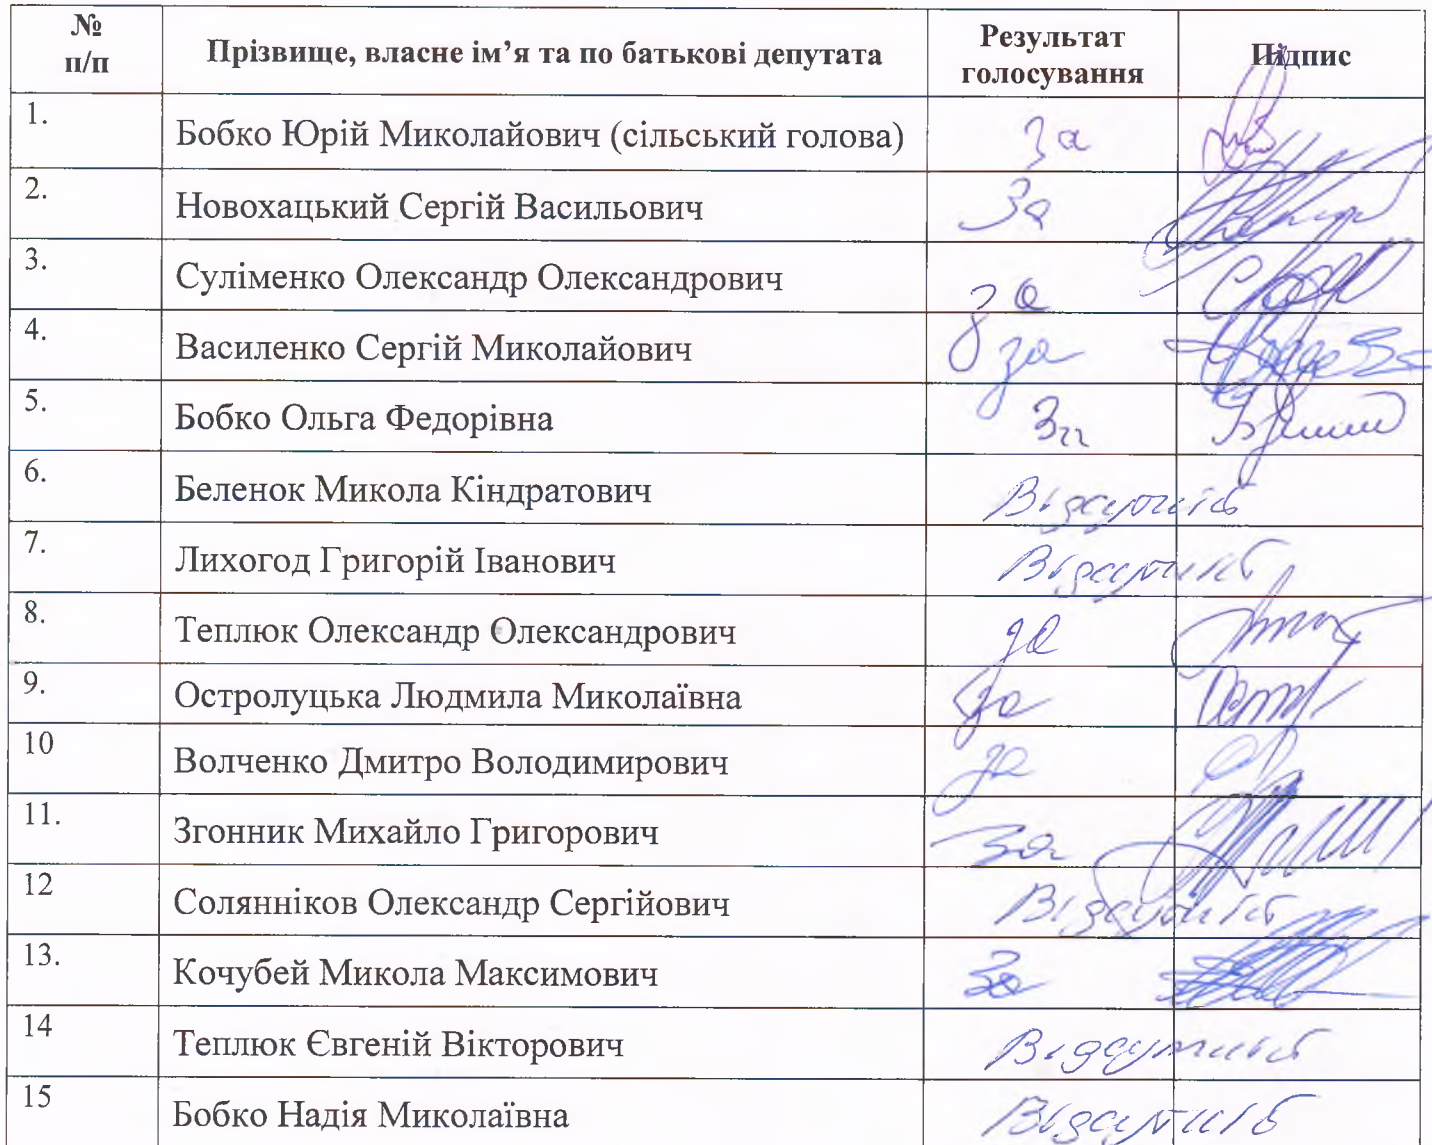 № п/п Прізвище, власне ім’я та по батькові депутата Результат голосування Підпис
1. Бобко Юрій Миколайович (сільський голова) За
2. Новохацький Сергій Васильович За
3. Суліменко Олександр Олександрович за
4. Василенко Сергій Миколайович за
5. Бобко Ольга Федорівна За
6. Беленок Микола Кіндратович Відсутній
7. Лихогод Григорій Іванович Відсутній
8. Теплюк Олександр Олександрович за
9. Остролуцька Людмила Миколаївна за
10 Волченко Дмитро Володимирович за
11. Згонник Михайло Григорович За
12 Солянніков Олександр Сергійович Відсутній
13. Кочубей Микола Максимович За
14 Теплюк Євгеній Вікторович Відсутній
15 Бобко Надія Миколаївна